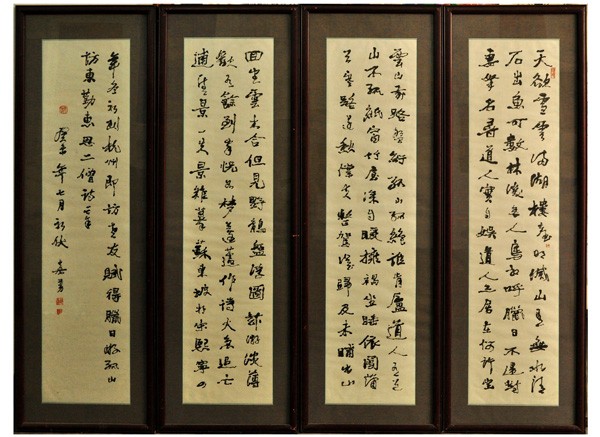 天欲雪雲滿湖樓臺明滅山有無水清
石出魚可數林深無人鳥相呼臘日不歸對
妻孥名尋道人實自娛道人之居在何許寶
雲山前路盤紆孤山孤絕誰肯廬道人有道
山不孤紙窗竹屋深自暖擁褐坐睡依團蒲
天寒路遠愁僕夫整駕催歸及未晡出山
回望雲木合但見野鶻盤浮圖茲游淡薄
歡有餘到家恍如夢蘧蘧作詩火急追亡
逋清景一失景難摹蘇東坡於宋熙寧四
年冬初到杭州即訪友賦得臘日游孤山
訪惠勤惠思二僧詩
年七月初伏